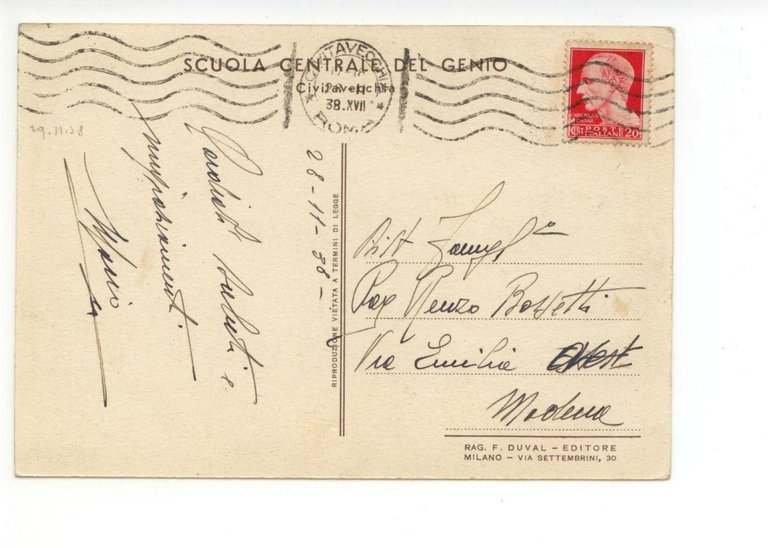 SCUOLA CENTRALE DEL GENIO
Civitavecchia
CIVITAVECCHIA
38.XVII
ROMA
POSTE
ITALIANE
20
29.11.38
Cordiali saluti e
ringraziamenti
Mario
28-11-38-
RIPRODUZIONE VIETATA A TERMINI DI LEGGE
Famigl
Renzo Bossetti
Via Emilia Ovest
Modena
RAG. F. DUVAL – EDITORE
MILANO – VIA SETTEMBRINI, 30